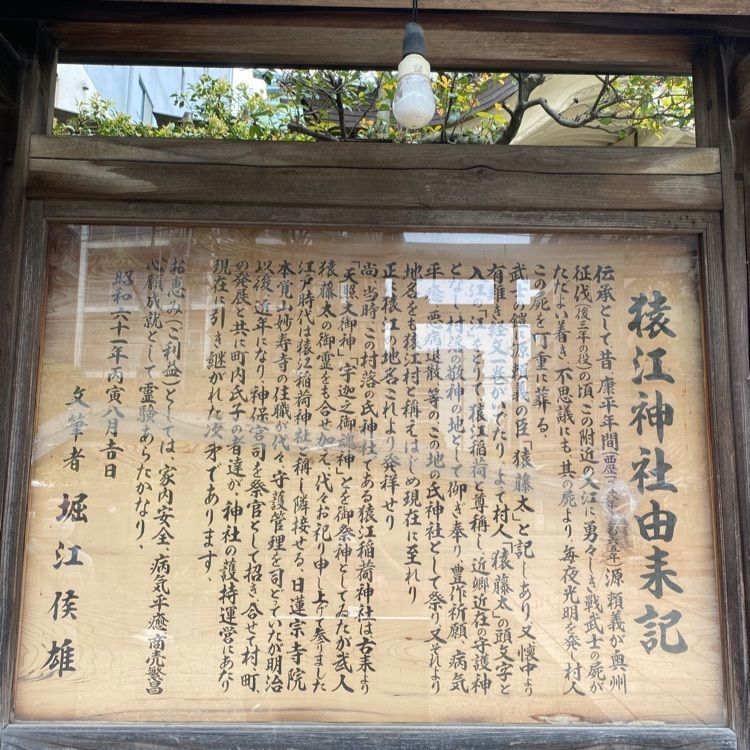 猿江神社由来記
伝承として昔康平年間(西歴 源頼義が奥州
征伐(後三年の役)の頃、この附近の入江に勇々しき戦武士の屍が
ただよい着き、不思議にも、其の屍より、毎夜光明を発し村人
この屍を丁重に葬る、
武士の鎧に源頼義の臣「猿藤太」と記しあり、又懐中より
有難き経文一巻がいでたり、よって村人「猿藤太」の頭文字と
入江の「江」をとりて、猿江稲荷と尊称し近郷近在の守護神
となし、村落の敬神の地として仰ぎ奉り、豊作祈願、病気
平癒、悪病退散、等のこの地の氏神社として祭り又それより
地名をも猿江村と称えはじめ現在に至れり
正に猿江地名これより発祥せり
尚、当時、この村落の氏神社である猿江稲荷神社は古来より
「天照大御神」「宇迦之御魂神」とを御祭神としてゐたが武人
猿藤太の御霊をも合せ加え、代々お祀り申し上げて参りました
江戸時代は猿江稲荷神社と称し隣接せる、日蓮宗寺院
本覚山妙寿寺の住職が代々、守護管理を司どっていたが明治
以後、近年になり、神保宮司を祭官として招き、合せて村、町、
の発展と共に町内氏子の者達が、神社の護持運営にあたり
現在に引き継がれた次第であります
お恵み(ご利益)としては、家内安全、病気平癒、商売繁昌
心願成就として霊験あらたかなり、
昭和六十一年丙寅八月吉日
文筆者 堀江侯雄